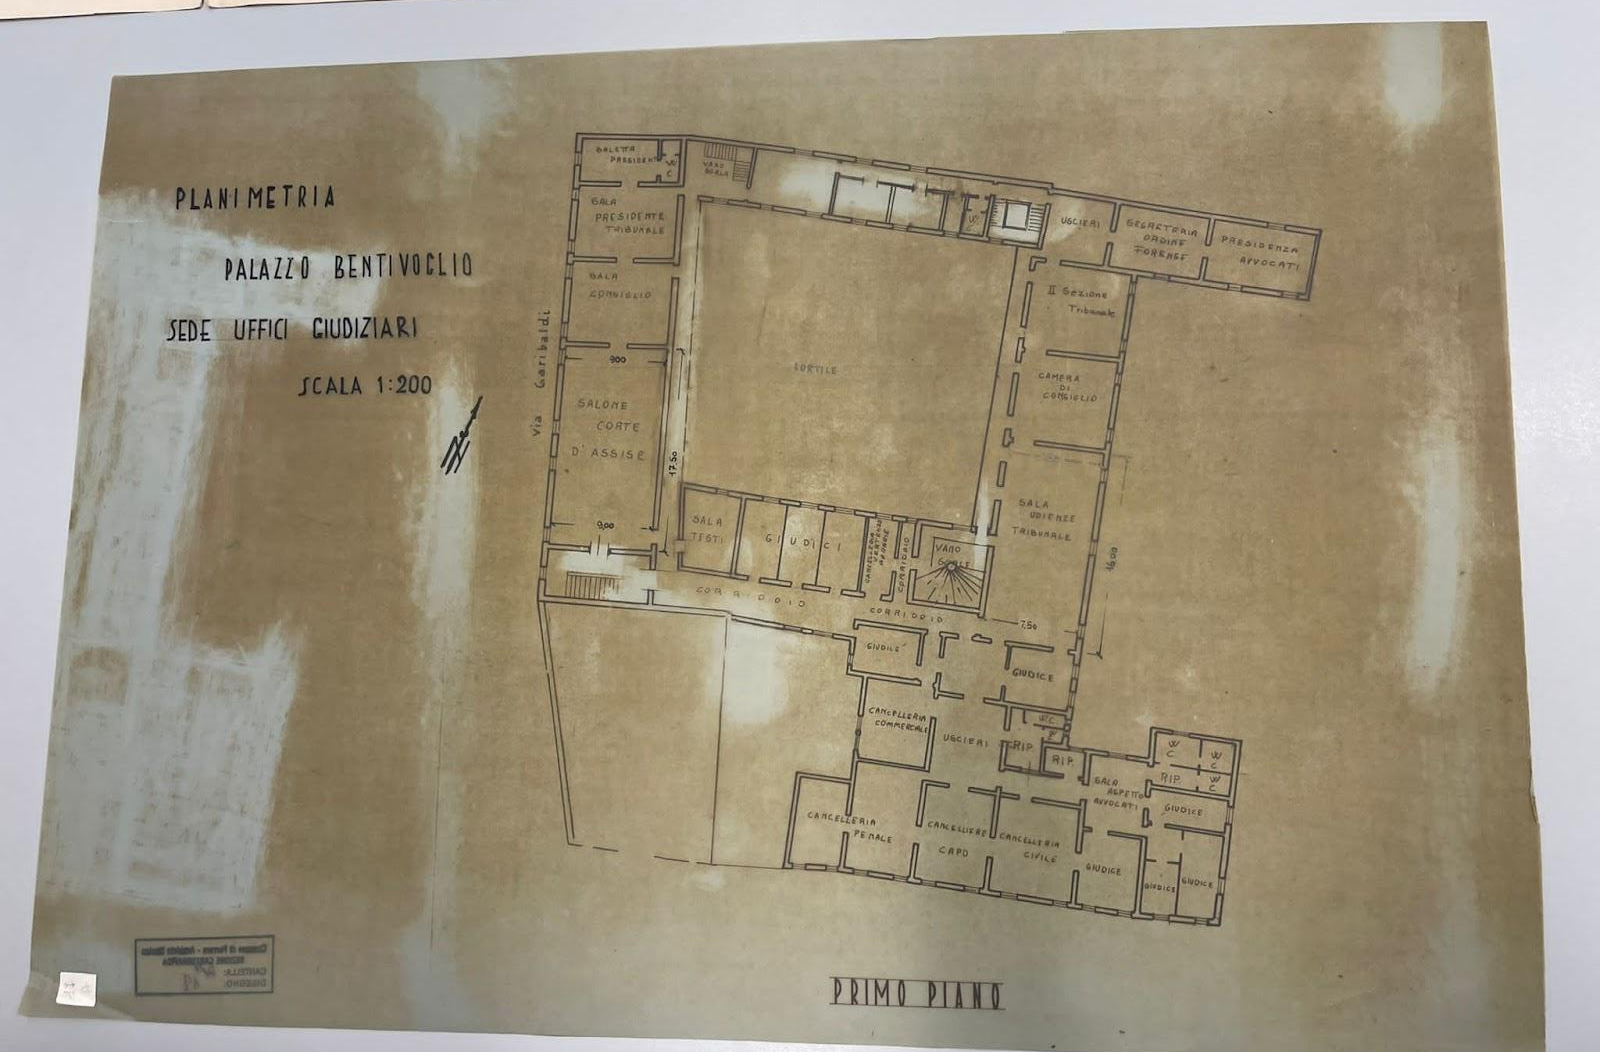 PLANIMETRIA
PALAZZO BENTIVOGLIO
SEDE UFFICI GIUDIZIARI
SCALA 1:200
via Garibaldi
SALETTA
PRESIDENTE
WC
VANO
SCALA
SALA
PRESIDENTE
TRIBUNALE
SALA
CONSIGLIO
900
SALONE
CORTE
D'ASSISE
17.50
9,00
CORTILE
W
USCIERI
SEGRETERIA
ORDINE
FORENSE
PRESIDENZA
AVVOCATI
II Sezione
Tribunale
CAMERA
DI
CONSIGLIO
SALA
UDIENZE
TRIBUNALE
16.00
7,50
SALA
TESTI
GIUDICI
CANCELLERIA
CORRIDOIO
VANO
SCALE
CORRIDOIO
CORRIDOIO
GIUDICE
GIUDICE
CANCELLERIA
COMMERCIALE
USCIERI
WC
RIP.
RIP.
SALA
ASPETTO
AVVOCATI
WC
WC
RIP.
WC
GIUDICE
CANCELLERIA
PENALE
CANCELLIERE
CAPO
CANCELLERIA
CIVILE
GIUDICE
GIUDICE
GIUDICE
PRIMO PIANO
Comune di Ferrara - Archivio Storico
SEZIONE CARTOGRAFICA
CARTELLA:
DISEGNO: